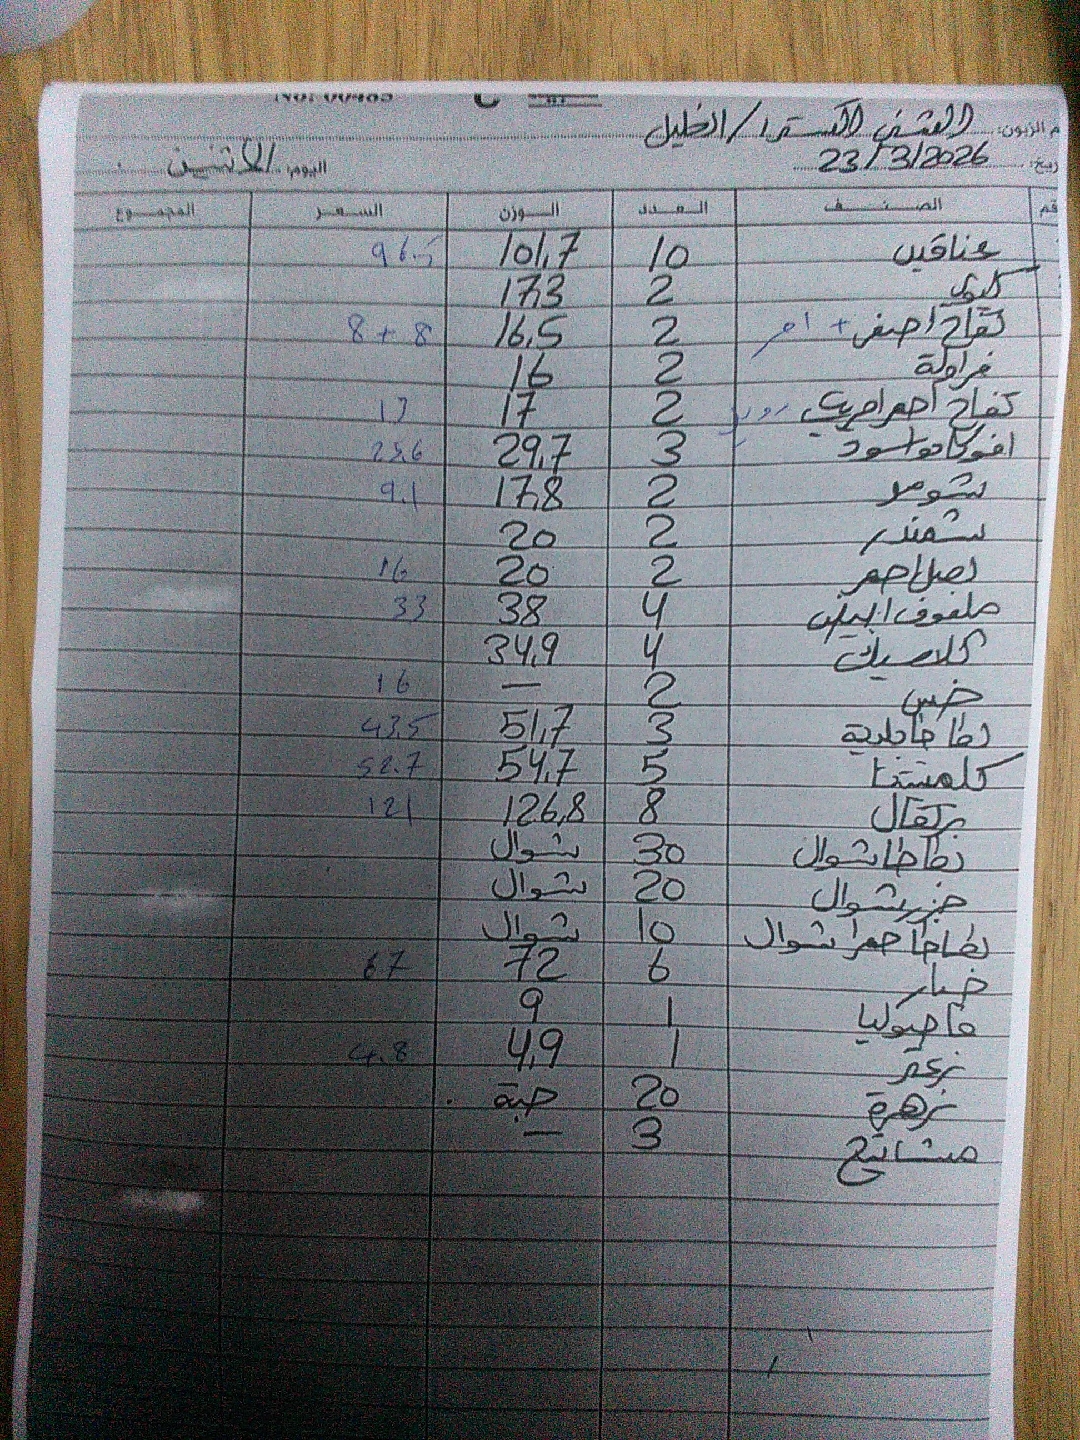 No: 00485
م الزبون: العشي اكسترا / الخليل
ريخ: 23/3/2026 اليوم: الاثنين
قم الصنف العدد الوزن السعر المجموع
عناقيد 10 101,7 96.5
كيوي 2 17,3
تفاح اصفر + احمر 2 16,5 8 + 8
فراولة 2 16
تفاح احمر امريكي 2 17 17
افوكادو اسود 3 29,7 25.6
شومر 2 17,8 9.1
شمندر 2 20
بصل احمر 2 20 16
ملفوف ابيض 4 38 33
كلاسيك 4 34,9
خس 2 — 16
بطاطا حلوة 3 51,7 43.5
كلمنتينا 5 54,7 52.7
برتقال 8 126,8 121
بطاطا شوال 30 شوال
جزر شوال 20 شوال
بطاطا حمرا شوال 10 شوال
خيار 6 72 67
فاصوليا 1 9
زعتر 1 4,9 4.8
زهرة 20 حبة
مشاتيح 3 —